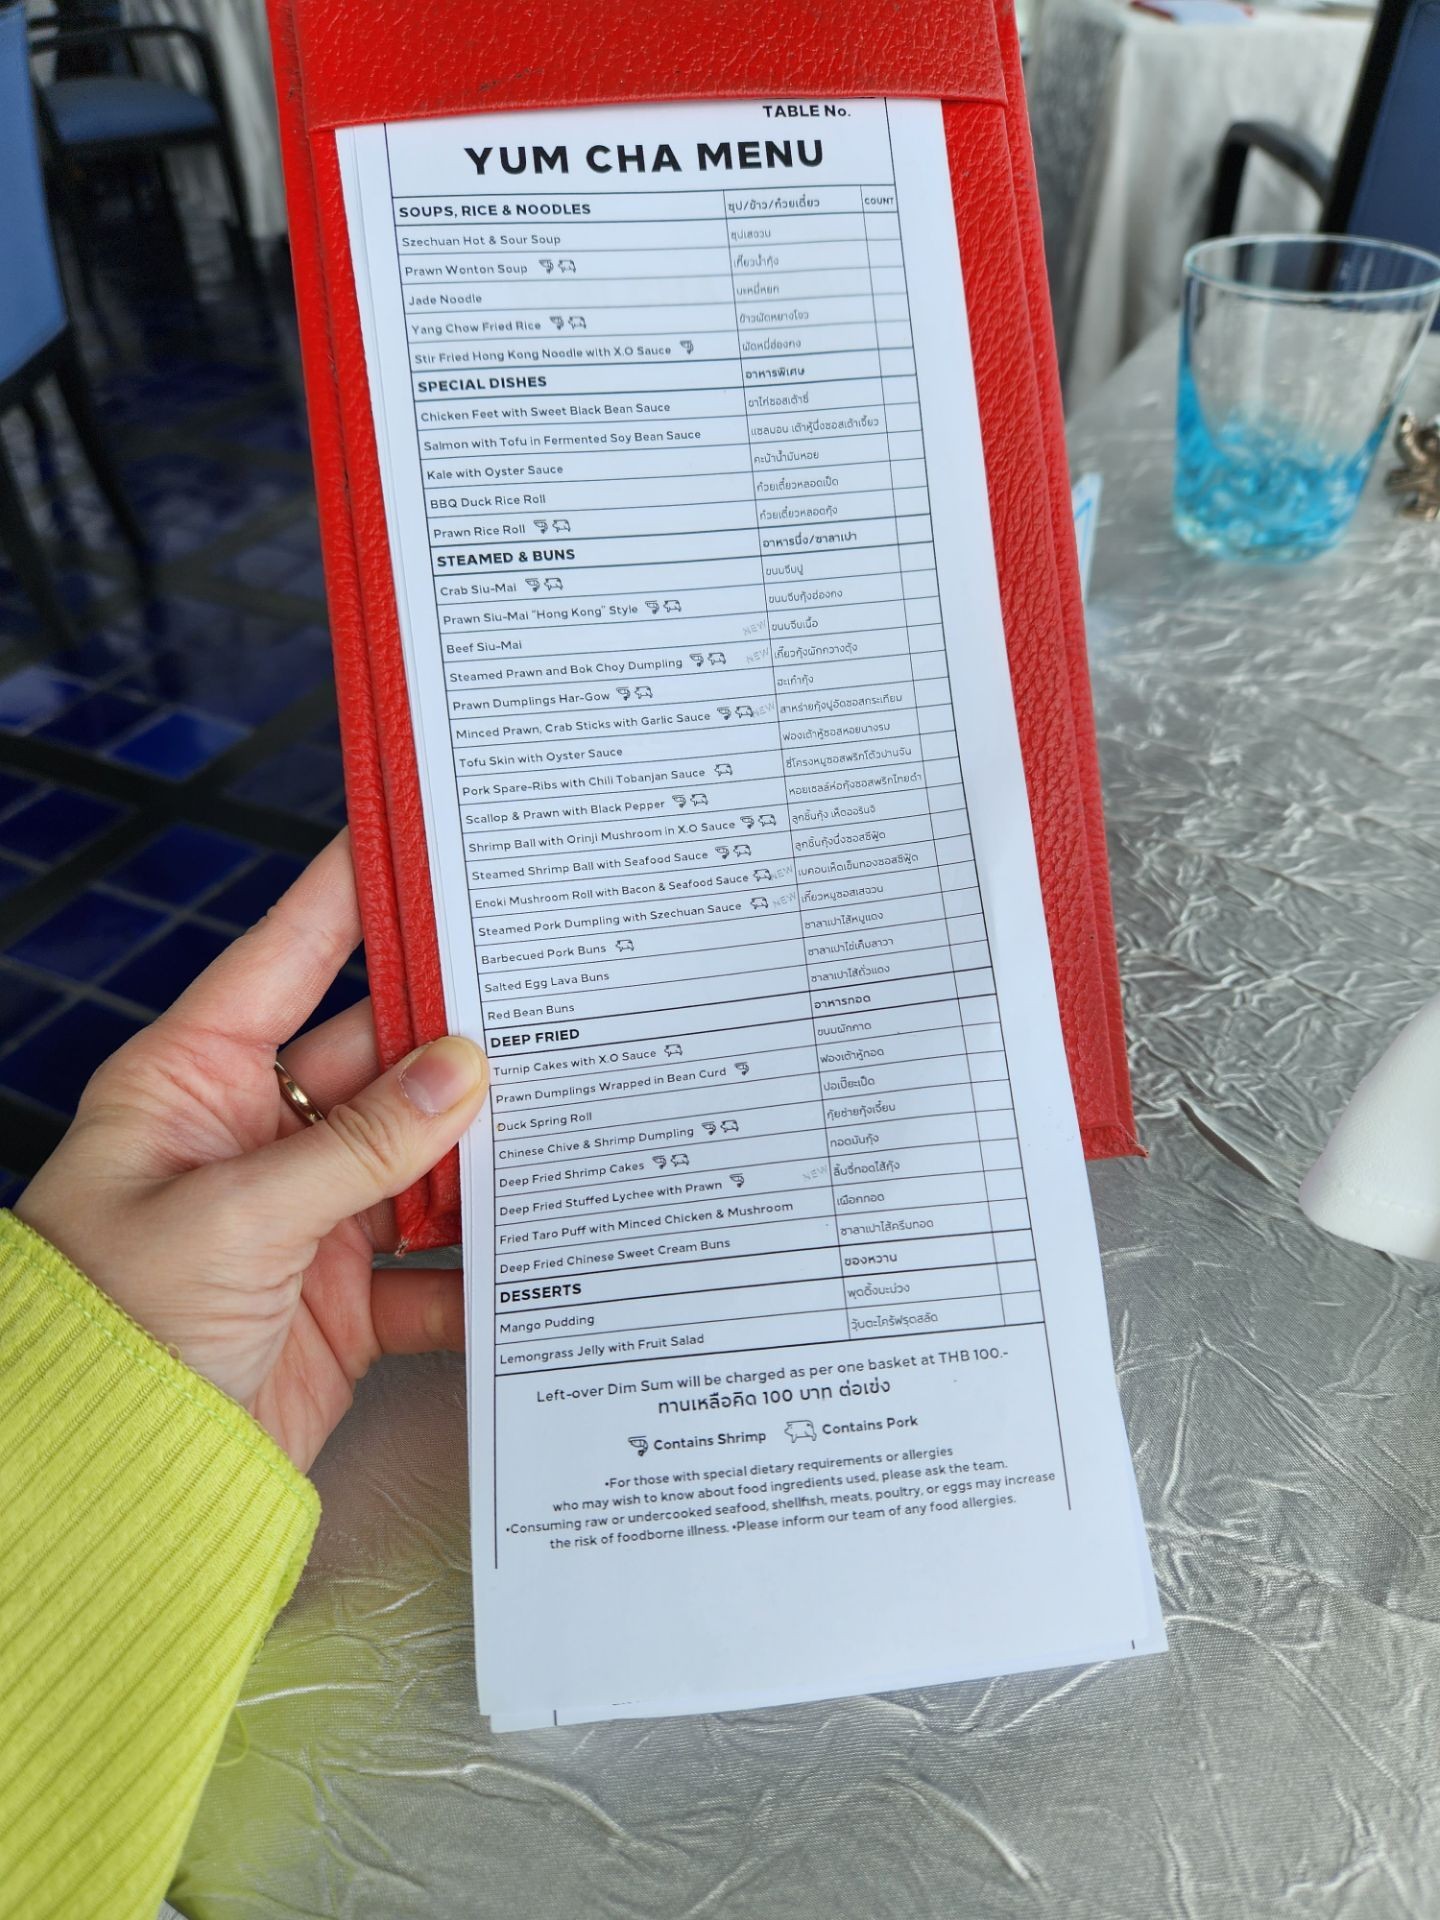 TABLE No.
YUM CHA MENU
SOUPS, RICE & NOODLES ซุป/ข้าว/ก๋วยเตี๋ยว COUNT
Szechuan Hot & Sour Soup ซุปเสฉวน
Prawn Wonton Soup เกี๊ยวน้ำกุ้ง
Jade Noodle บะหมี่หยก
Yang Chow Fried Rice ข้าวผัดหยางโจว
Stir Fried Hong Kong Noodle with X.O Sauce ผัดหมี่ฮ่องกง
SPECIAL DISHES อาหารพิเศษ
Chicken Feet with Sweet Black Bean Sauce ขาไก่ซอสเต้าซี่
Salmon with Tofu in Fermented Soy Bean Sauce แซลมอน เต้าหู้นึ่งซอสเต้าเจี้ยว
Kale with Oyster Sauce คะน้าน้ำมันหอย
BBQ Duck Rice Roll ก๋วยเตี๋ยวหลอดเป็ด
Prawn Rice Roll ก๋วยเตี๋ยวหลอดกุ้ง
STEAMED & BUNS อาหารนึ่ง/ซาลาเปา
Crab Siu-Mai ขนมจีบปู
Prawn Siu-Mai "Hong Kong" Style ขนมจีบกุ้งฮ่องกง
Beef Siu-Mai NEW ขนมจีบเนื้อ
Steamed Prawn and Bok Choy Dumpling NEW เกี๊ยวกุ้งผักกวางตุ้ง
Prawn Dumplings Har-Gow ฮะเก๋ากุ้ง
Minced Prawn, Crab Sticks with Garlic Sauce NEW สาหร่ายกุ้งปูอัดซอสกระเทียม
Tofu Skin with Oyster Sauce ฟองเต้าหู้ซอสหอยนางรม
Pork Spare-Ribs with Chili Tobanjan Sauce ซี่โครงหมูซอสพริกโต้วปานจัน
Scallop & Prawn with Black Pepper หอยเชลล์ห่อกุ้งซอสพริกไทยดำ
Shrimp Ball with Orinji Mushroom in X.O Sauce ลูกชิ้นกุ้ง เห็ดออรินจิ
Steamed Shrimp Ball with Seafood Sauce ลูกชิ้นกุ้งนึ่งซอสซีฟู้ด
Enoki Mushroom Roll with Bacon & Seafood Sauce NEW เบคอนเห็ดเข็มทองซอสซีฟู้ด
Steamed Pork Dumpling with Szechuan Sauce NEW เกี๊ยวหมูซอสเสฉวน
Barbecued Pork Buns ซาลาเปาไส้หมูแดง
Salted Egg Lava Buns ซาลาเปาไข่เค็มลาวา
Red Bean Buns ซาลาเปาไส้ถั่วแดง
DEEP FRIED อาหารทอด
Turnip Cakes with X.O Sauce ขนมผักกาด
Prawn Dumplings Wrapped in Bean Curd ฟองเต้าหู้ทอด
Duck Spring Roll ปอเปี๊ยะเป็ด
Chinese Chive & Shrimp Dumpling กุ้ยช่ายกุ้งเจี๋ยน
Deep Fried Shrimp Cakes ทอดมันกุ้ง
Deep Fried Stuffed Lychee with Prawn NEW ลิ้นจี่ทอดไส้กุ้ง
Fried Taro Puff with Minced Chicken & Mushroom เผือกทอด
Deep Fried Chinese Sweet Cream Buns ซาลาเปาไส้ครีมทอด
DESSERTS ของหวาน
Mango Pudding พุดดิ้งมะม่วง
Lemongrass Jelly with Fruit Salad วุ้นตะไคร้ฟรุตสลัด
Left-over Dim Sum will be charged as per one basket at THB 100.-
ทานเหลือคิด 100 บาท ต่อเข่ง
Contains Shrimp Contains Pork
•For those with special dietary requirements or allergies
who may wish to know about food ingredients used, please ask the team.
•Consuming raw or undercooked seafood, shellfish, meats, poultry, or eggs may increase
the risk of foodborne illness. •Please inform our team of any food allergies.